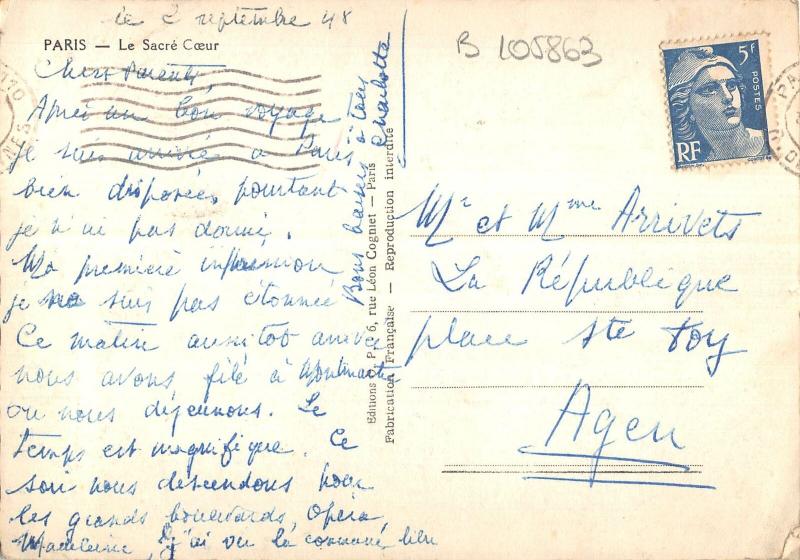 le 2 septembre 48
PARIS — Le Sacré Cœur
Chers Parents
Après un bon voyage
je suis arrivée à Paris
bien disposée, pourtant
je n'ai pas dormi.
Ma première impression
je ne suis pas étonnée
Ce matin aussitôt arrivée
nous avons filé à Montmartre
ou nous déjeunons. Le
temps est magnifique. Ce
soir nous descendons pour
les grands boulevards, Opéra
Madeleine, j'ai vu la
Bons baisers à tous
Charlotte
Editions P. P. 6, rue Léon Cogniet — Paris
Fabrication Française — Reproduction interdite
B 105863
5F
POSTES
RF
Mr et Mme Arrivets
La République
place Ste Foy
Agen